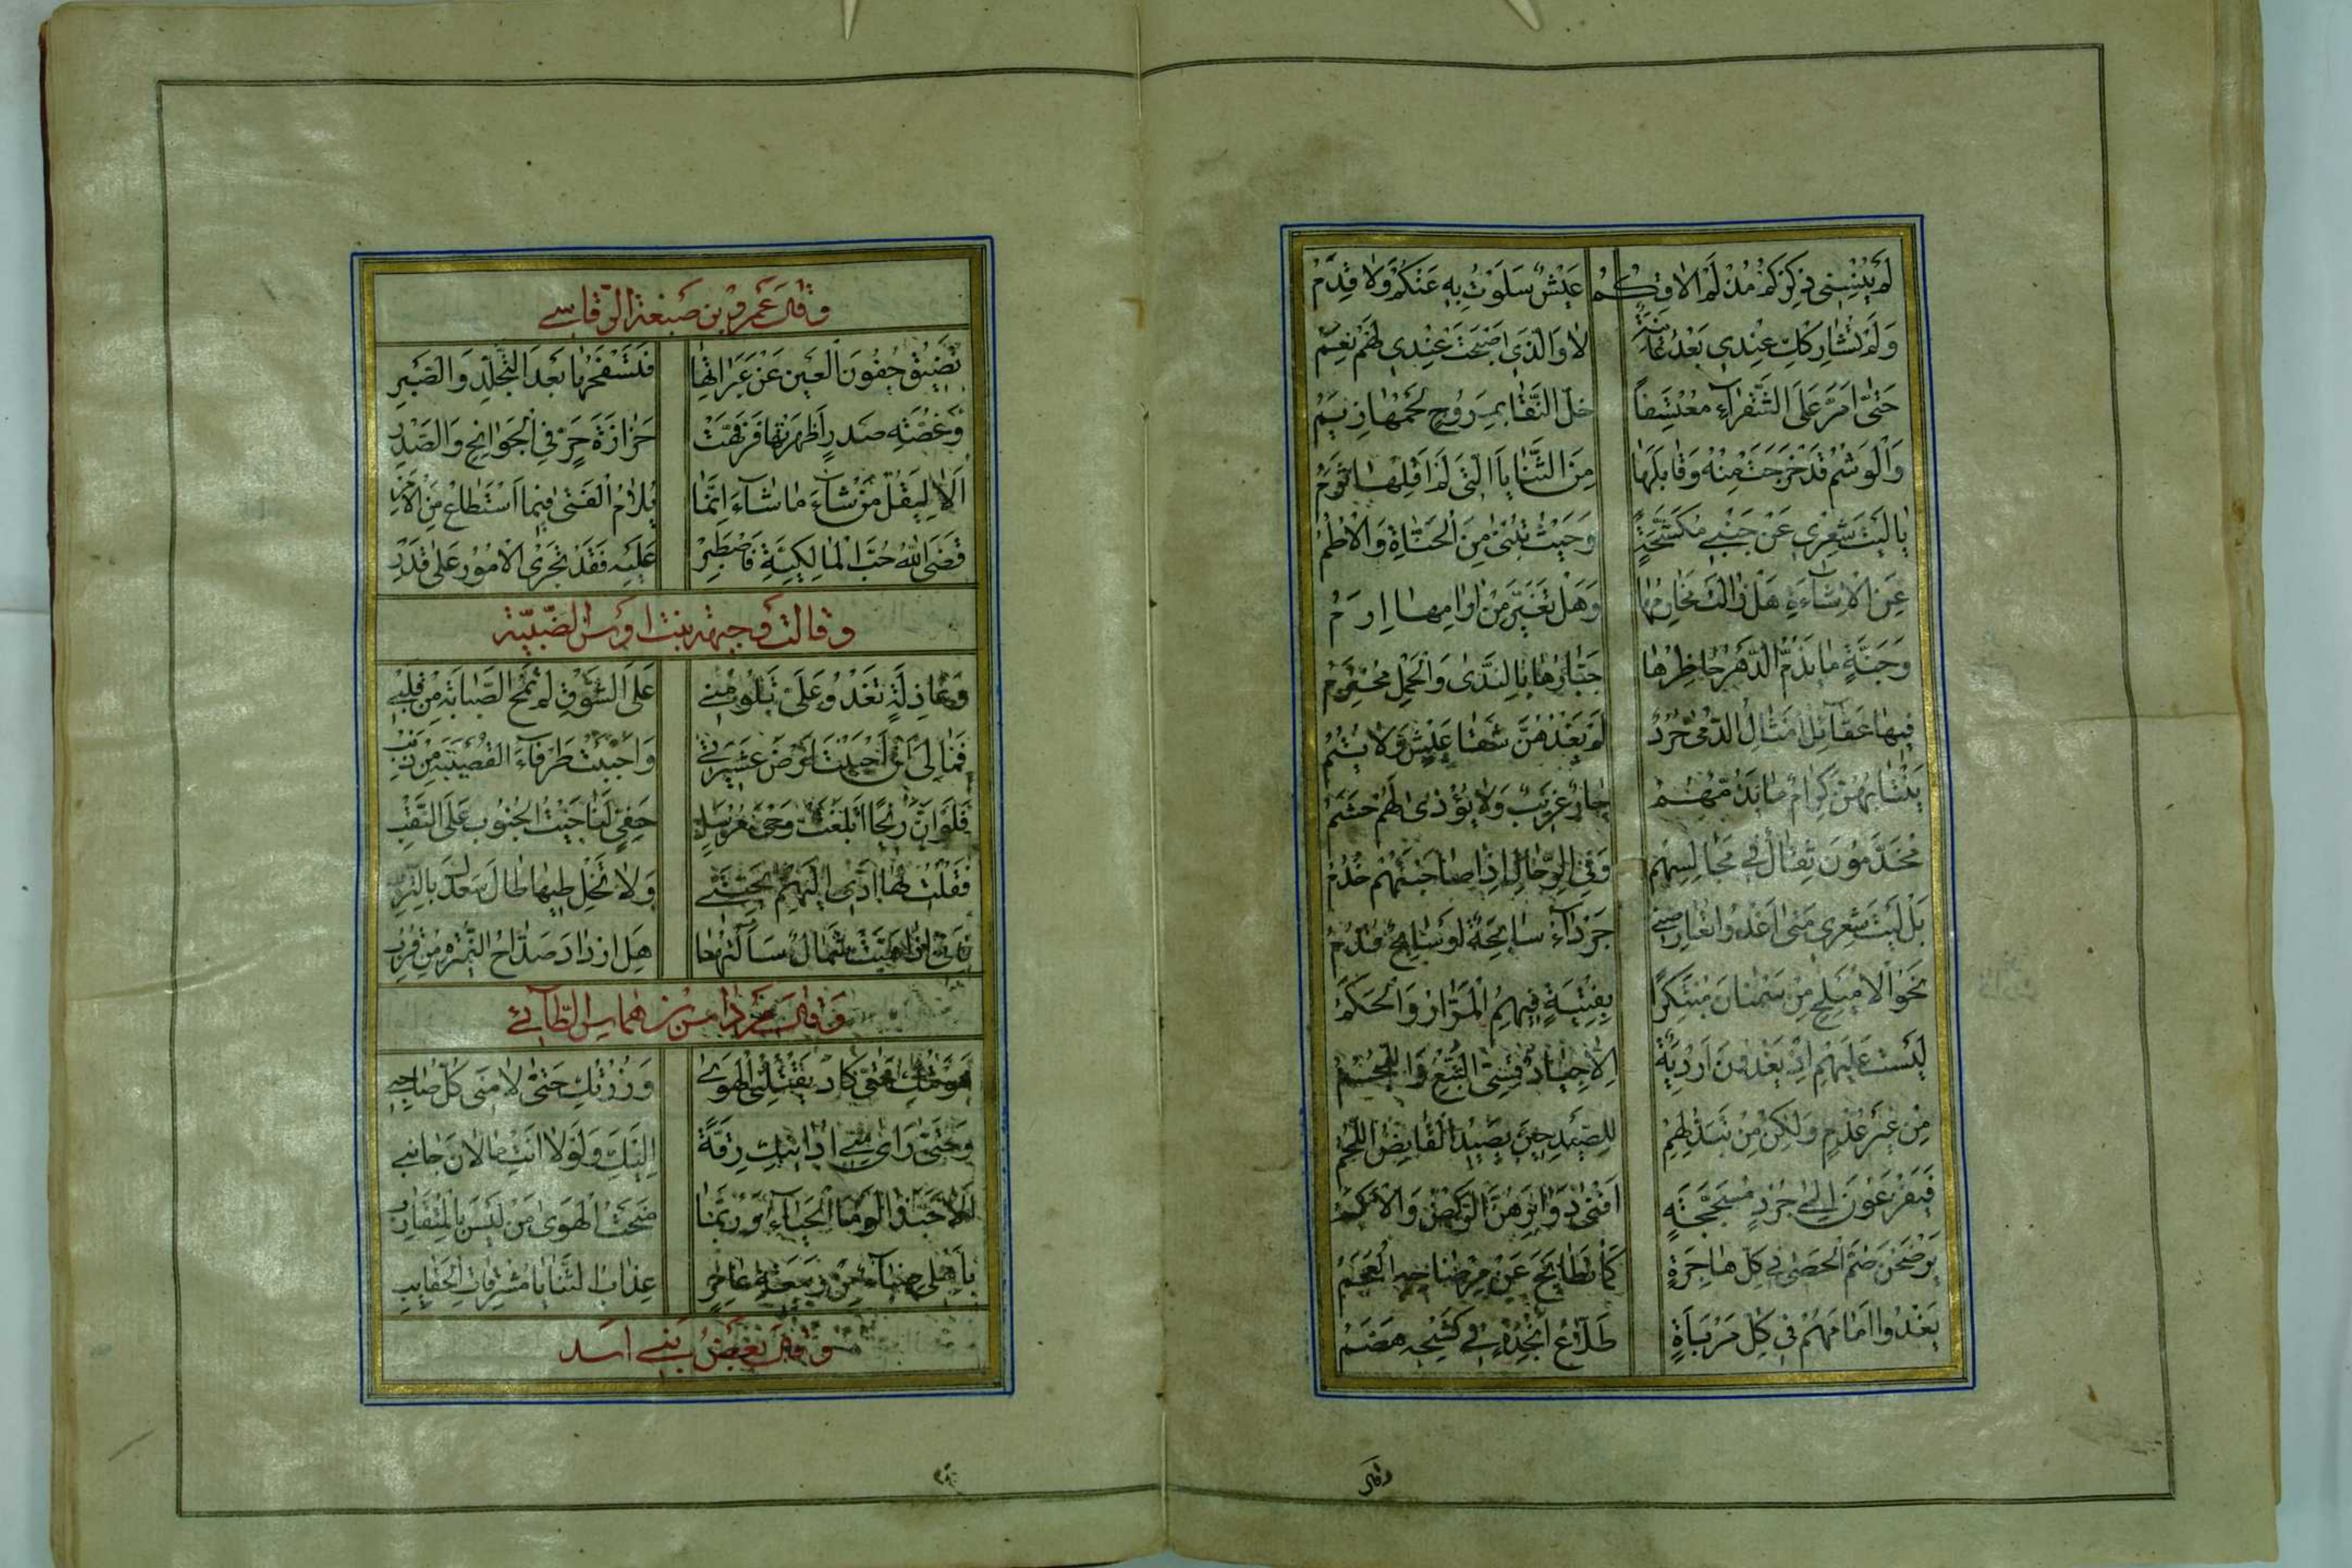 لَمْ يُنْسِنِي ذِكْرَكُمْ مُذْ لَمْ أُلَاقِكُمْ عَيْشٌ سَلَوْتُ بِهِ عَنْكُمْ وَلَا قِدَمُ
وَلَمْ تُشَارِكْكِ عِنْدِي بَعْدُ غَانِيَةٌ لَا وَالَّذِي أَصْبَحَتْ عِنْدِي لَهُ نِعَمُ
حَتَّى أَمُرَّ عَلَى الشَّقْرَاءِ مُعْتَسِفًا خَلَّ النَّقَا بِمَرُوحٍ لَحْمُهَا زِيَمُ
وَالْوَشْمُ قَدْ خَرَجَتْ مِنْهُ وَقَابَلَهَا مِنَ الثَّنَايَا الَّتِي لَمْ أَقْلِهَا ثَرَمُ
يَا لَيْتَ شِعْرِي عَنْ جَنْبَيْ مُكَشَّحَةٍ وَحَيْثُ تُبْنَى مِنَ الْحَنَّاءَةِ الْأُطُمُ
عَنِ الْأَشَاءَةِ هَلْ زَالَتْ مَخَارِمُهَا وَهَلْ تَغَيَّرَ مِنْ آرَامِهَا إِرَمُ
وَجَنَّةٍ مَا يَذُمُّ الدَّهْرَ حَاضِرُهَا جَبَّارُهَا بِالنَّدَى وَالْحَمْلِ مُحْتَزِمُ
فِيهَا عَقَائِلُ أَمْثَالُ الدُّمَى خُرُدٌ لَمْ يَغْذُهُنَّ شَقَا عَيْشٍ وَلَا يُتُمُ
يَنْتَابُهُنَّ كِرَامٌ مَا يَذُمُّهُمُ جَارٌ غَرِيبٌ وَلَا يُؤْذَى لَهُمْ حَشَمُ
مُخَدَّمُونَ ثِقَالٌ فِي مَجَالِسِهِمْ وَفِي الرِّحَالِ إِذَا صَاحَبْتَهُمْ خَدَمُ
بَلْ لَيْتَ شِعْرِي مَتَى أَغْدُو تُعَارِضُنِي جَرْدَاءُ سَابِحَةٌ أَوْ سَابِحٌ قُدُمُ
نَحْوَ الْأُمَيْلِحِ مِنْ سَمْنَانَ مُبْتَكِرًا بِفِتْيَةٍ فِيهِمُ الْمَرَّارُ وَالْحَكَمُ
لَيْسَتْ عَلَيْهِمْ إِذْ يَغْدُونَ أَرْدِيَةٌ إِلَّا جِيَادُ قِسِيِّ النَّبْعِ وَاللُّجُمُ
مِنْ غَيْرِ عُدْمٍ وَلَكِنْ مِنْ تَبَذُّلِهِمْ لِلصَّيْدِ حِينَ يَصِيدُ الْقَانِصُ اللَّحِمُ
فَيَفْزَعُونَ إِلَى جُرْدٍ مُسَحَّجَةٍ أَفْنَى دَوَابِرَهُنَّ الرَّكْضُ وَالْأَكَمُ
يَرْضَخْنَ صُمَّ الْحَصَى فِي كُلِّ هَاجِرَةٍ كَمَا تَطَايَحَ عَنْ مِرْضَاخِهِ الْعَجَمُ
يَغْدُو أَمَامَهُمْ فِي كُلِّ مَرْبَأَةٍ طَلَّاعُ أَنْجِدَةٍ فِي كَشْحِهِ هَضَمُ
وقال
وقال عمرو بن صبيعة الرقاشي
تَضِيقُ جُفُونُ الْعَيْنِ عَنْ عَبَرَاتِهَا فَتَسْفَحُهَا بَعْدَ التَّجَلُّدِ وَالصَّبْرِ
وَغُصَّةِ صَدْرٍ أَظْهَرَتْهَا فَرَفَّهَتْ حَزَازَةَ حَرٍّ فِي الْجَوَانِحِ وَالصَّدْرِ
أَلَا لِيَقُلْ مَنْ شَاءَ مَا شَاءَ إِنَّمَا يُلَامُ الْفَتَى فِيمَا اسْتَطَاعَ مِنَ الْأَمْرِ
قَضَى اللهُ حُبَّ الْمَالِكِيَّةِ فَاصْطَبِرْ عَلَيْهِ فَقَدْ تَجْرِي الْأُمُورُ عَلَى قَدْرِ
وقالت وجيهة بنت اوس الضبية
وَعَاذِلَةٍ تَغْدُو عَلَيَّ تَلُومُنِي عَلَى الشَّوْقِ لَمْ تَمْحُ الصَّبَابَةَ مِنْ قَلْبِي
فَمَا لِي إِنْ أَحْبَبْتُ أَرْضَ عَشِيرَتِي وَأَحْبَبْتُ طَرْفَاءَ الْقُصَيْبَةِ مِنْ ذَنْبِ
فَلَوْ أَنَّ رِيحًا أَبْلَغَتْ وَحْيَ مُرْسِلٍ حَفِيٍّ لَنَاجَيْتُ الْجَنُوبَ عَلَى النَّقْبِ
فَقُلْتُ لَهَا أَدِّي إِلَيْهِمْ تَحِيَّتِي وَلَا تَخْلِطِيهَا طَالَ سَعْدُكِ بِالتُّرْبِ
فَإِنِّي إِذَا هَبَّتْ شَمَالٌ سَأَلْتُهَا هَلِ ازْدَادَ صَدَّاحُ النُّمَيْرَةِ مِنْ قُرْبِ
وقال مرداس بن هماس الطائي
هَوِيتُكِ حَتَّى كَادَ يَقْتُلُنِي الْهَوَى وَزُرْتُكِ حَتَّى لَامَنِي كُلُّ صَاحِبِ
وَحَتَّى رَأَى مِنِّي أَدَانِيكِ رِقَّةً إِلَيْكِ وَلَوْلَا أَنْتِ مَا لَانَ جَانِبِي
أَلَا حَبَّذَا لَوْمَا الْحَيَاءُ وَرُبَّمَا مَنَحْتُ الْهَوَى مَنْ لَيْسَ بِالْمُتَقَارِبِ
بِأَهْلِي ظِبَاءٌ مِنْ رَبِيعَةِ عَامِرٍ عِذَابُ الثَّنَايَا مُشْرِفَاتُ الْحَقَائِبِ
وقال بعض بني اسد